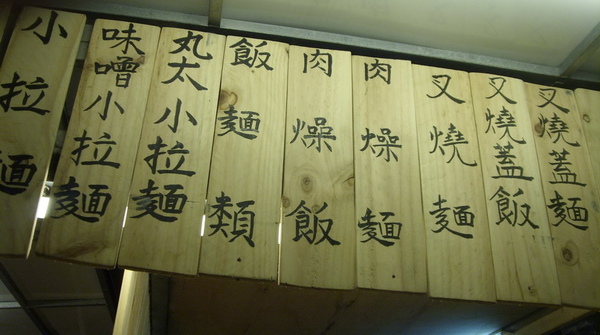 小拉麵
味噌小拉麵
丸太小拉麵
飯麵類
肉燥飯
肉燥麵
叉燒麵
叉燒蓋飯
叉燒蓋麵